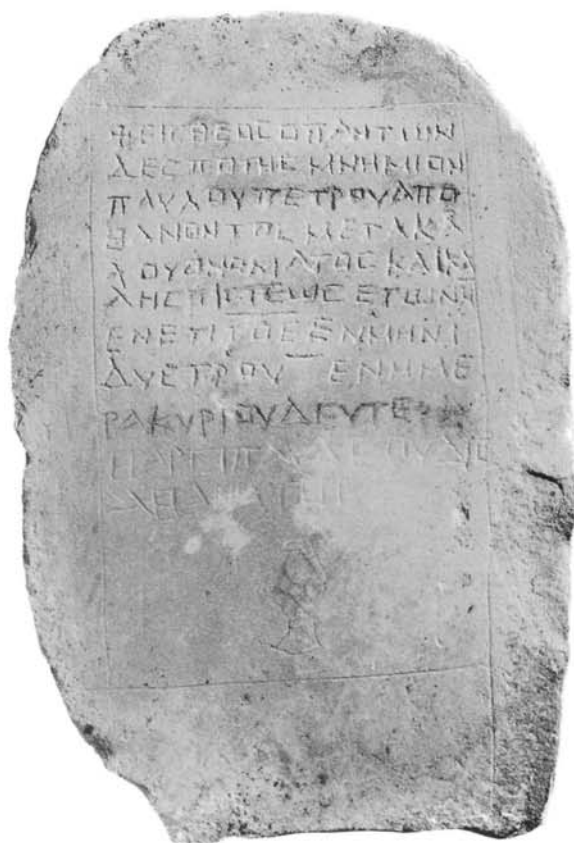 ΕΙCΘΕΟCΟΠΑΝΤΩΝ
ΔΕCΠΟΤΗCΜΝΗΜΙΟΝ
ΠΑΥΛΟΥΠΕΤΡΟΥΑΠΟ
ΘΑΝΟΝΤΟCΜΕΤΑΚΑ
ΛΟΥΟΝΟΜΑΤΟCΚΑΙΚΑ
ΛΗCΠΙCΤΕΩCΕΤΩΝΗ
ΕΝΕΤΙΤΟΕΕΝΜΗΝΙ
ΔΥCΤΡΟΥ ΕΝΗΜΕ
ΡΑΚΥΡΙΟΥΔΕΥΤΕ